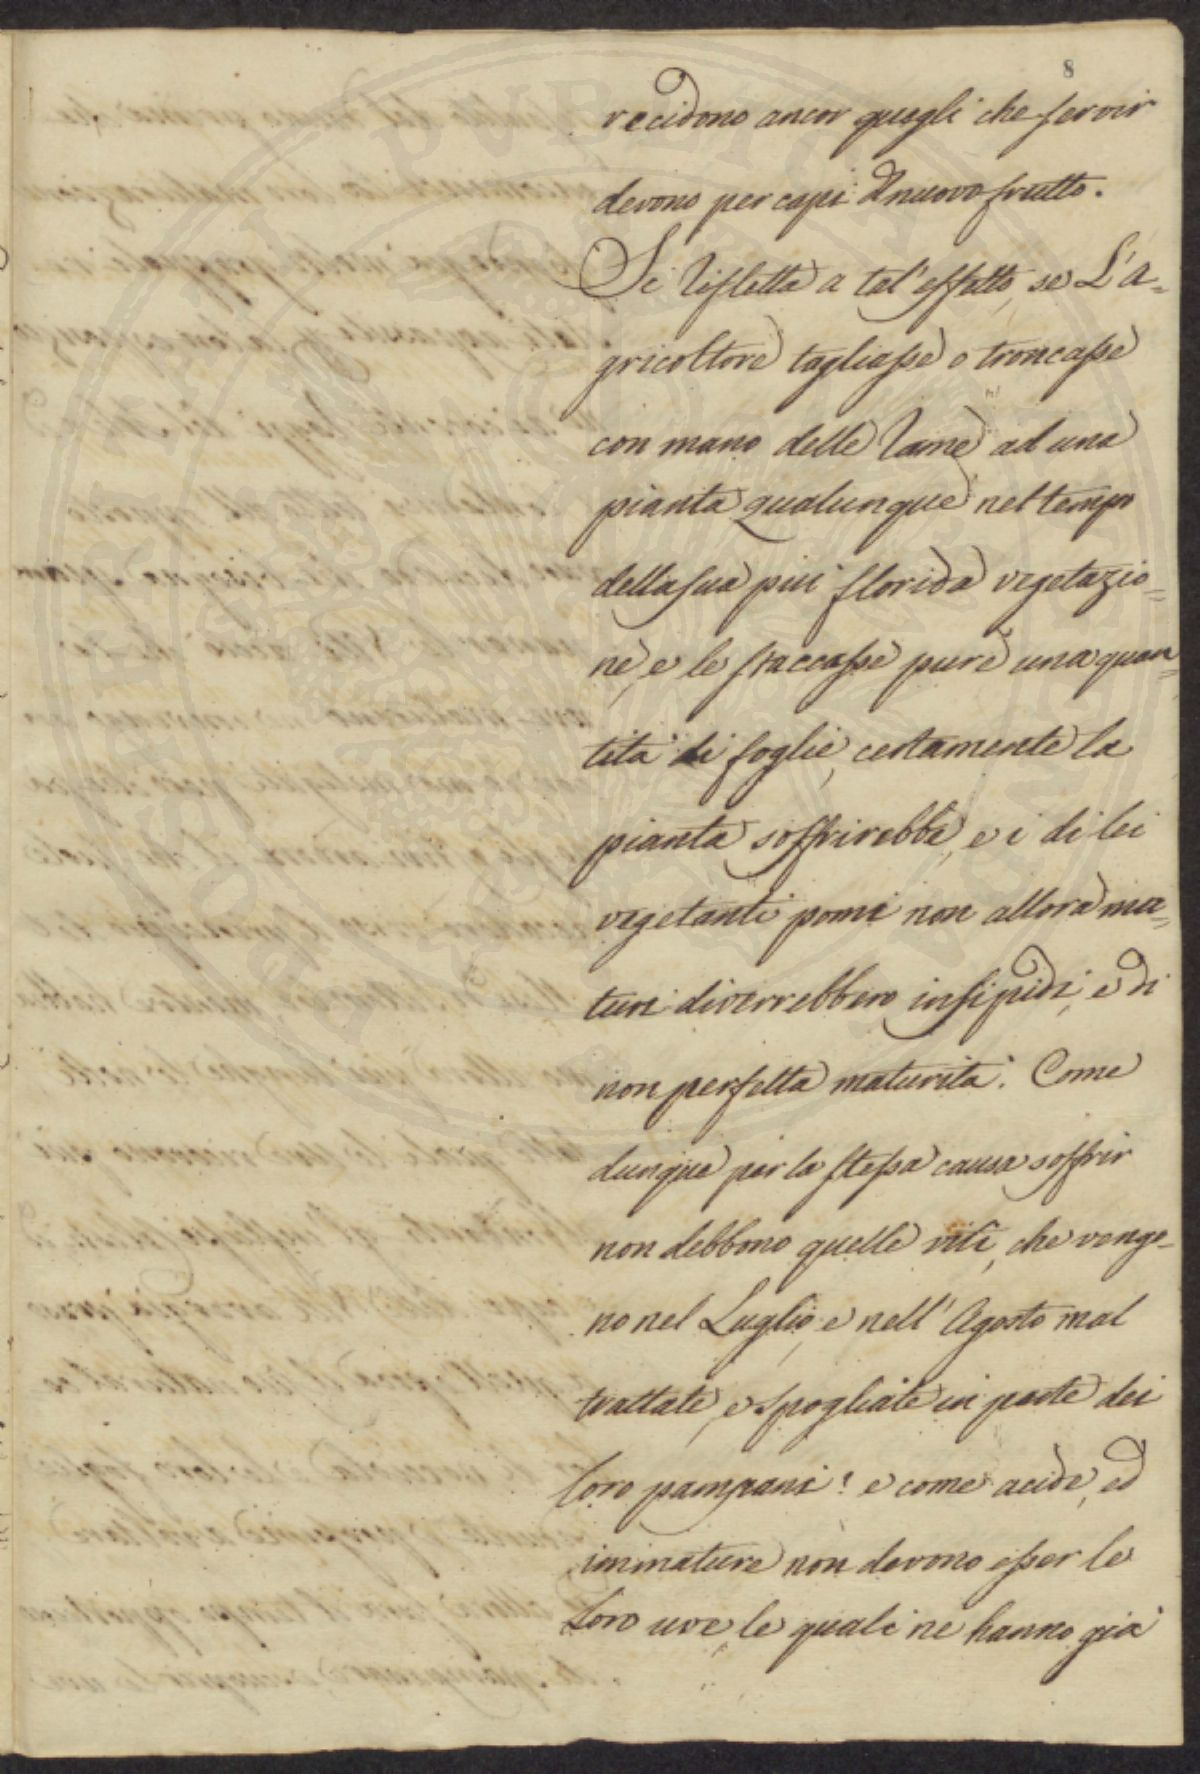 8
recidono ancor quegli che servir
devono per capi di nuovo frutto.
Si rifletta a tal'effetto, se L'a=
gricoltore tagliasse o troncasse
con mano delle rame ad una
pianta qualunque nel tempo
della sua più florida vegetazio=
ne, e le staccasse pure una quan=
tità di foglie, certamente la
pianta soffrirebbe, e i di lei
vegetanti pomi non allora ma=
turi diverrebbero insipidi, e di
non perfetta maturità. Come
dunque per la stessa causa soffrir
non debbono quelle viti, che venga=
no nel Luglio, e nell'Agosto mal
trattate, e spogliate in parte dei
loro pampani? e come acide, ed
immature non devono esser le
Loro uve, le quali ne hanno già